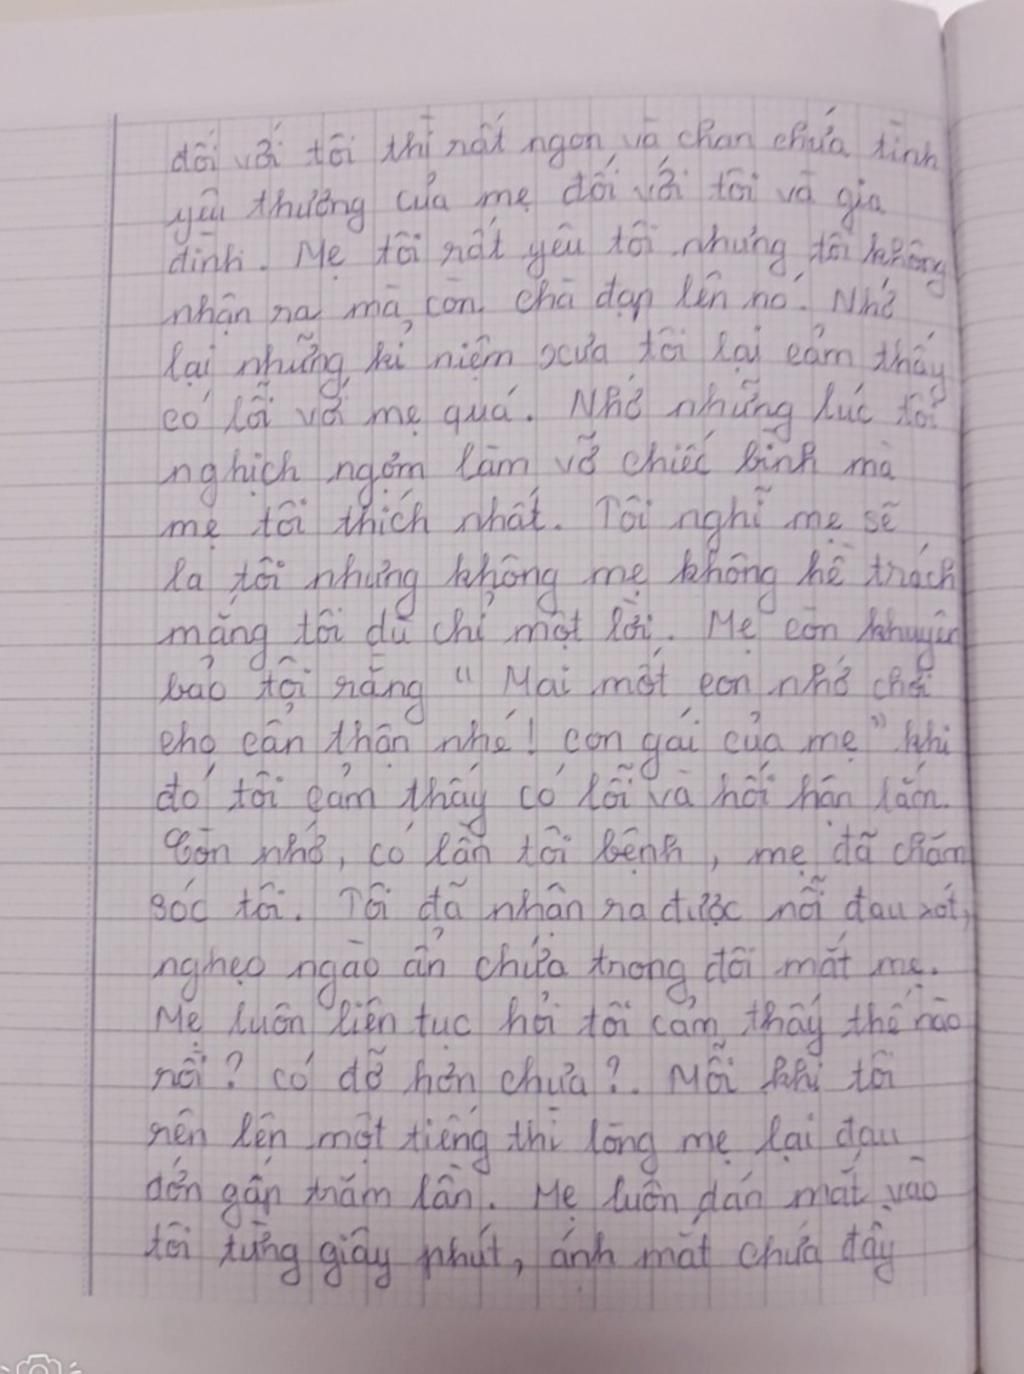 đối với tôi thì rất ngon và chan chứa tình
yêu thương của mẹ đối với tôi và gia
đình. Mẹ tôi rất yêu tôi nhưng tôi không
nhận ra mà còn chà đạp lên nó. Nhớ
lại những kỉ niệm xưa tôi lại cảm thấy
có lỗi với mẹ quá. Nhớ những lúc tôi
nghịch ngợm làm vỡ chiếc bình mà
mẹ tôi thích nhất. Tôi nghĩ mẹ sẽ
la tôi nhưng không mẹ không hề trách
mắng tôi dù chỉ một lời. Mẹ còn khuyên
bảo tôi rằng " Mai mốt con nhớ chơi
cho cẩn thận nhé! con gái của mẹ" khi
đó tôi cảm thấy có lỗi và hối hận lắm.
Còn nhớ, có lần tôi bệnh, mẹ đã chăm
sóc tôi. Tôi đã nhận ra được nỗi đau xót,
nghẹo ngào ẩn chứa trong đôi mắt mẹ.
Mẹ luôn liên tục hỏi tôi cảm thấy thế nào
rồi? có đỡ hơn chưa?. Mỗi khi tôi
rên lên một tiếng thì lòng mẹ lại đau
đớn gấp trăm lần. Mẹ luôn dán mắt vào
tôi từng giây phút, ánh mắt chứa đầy